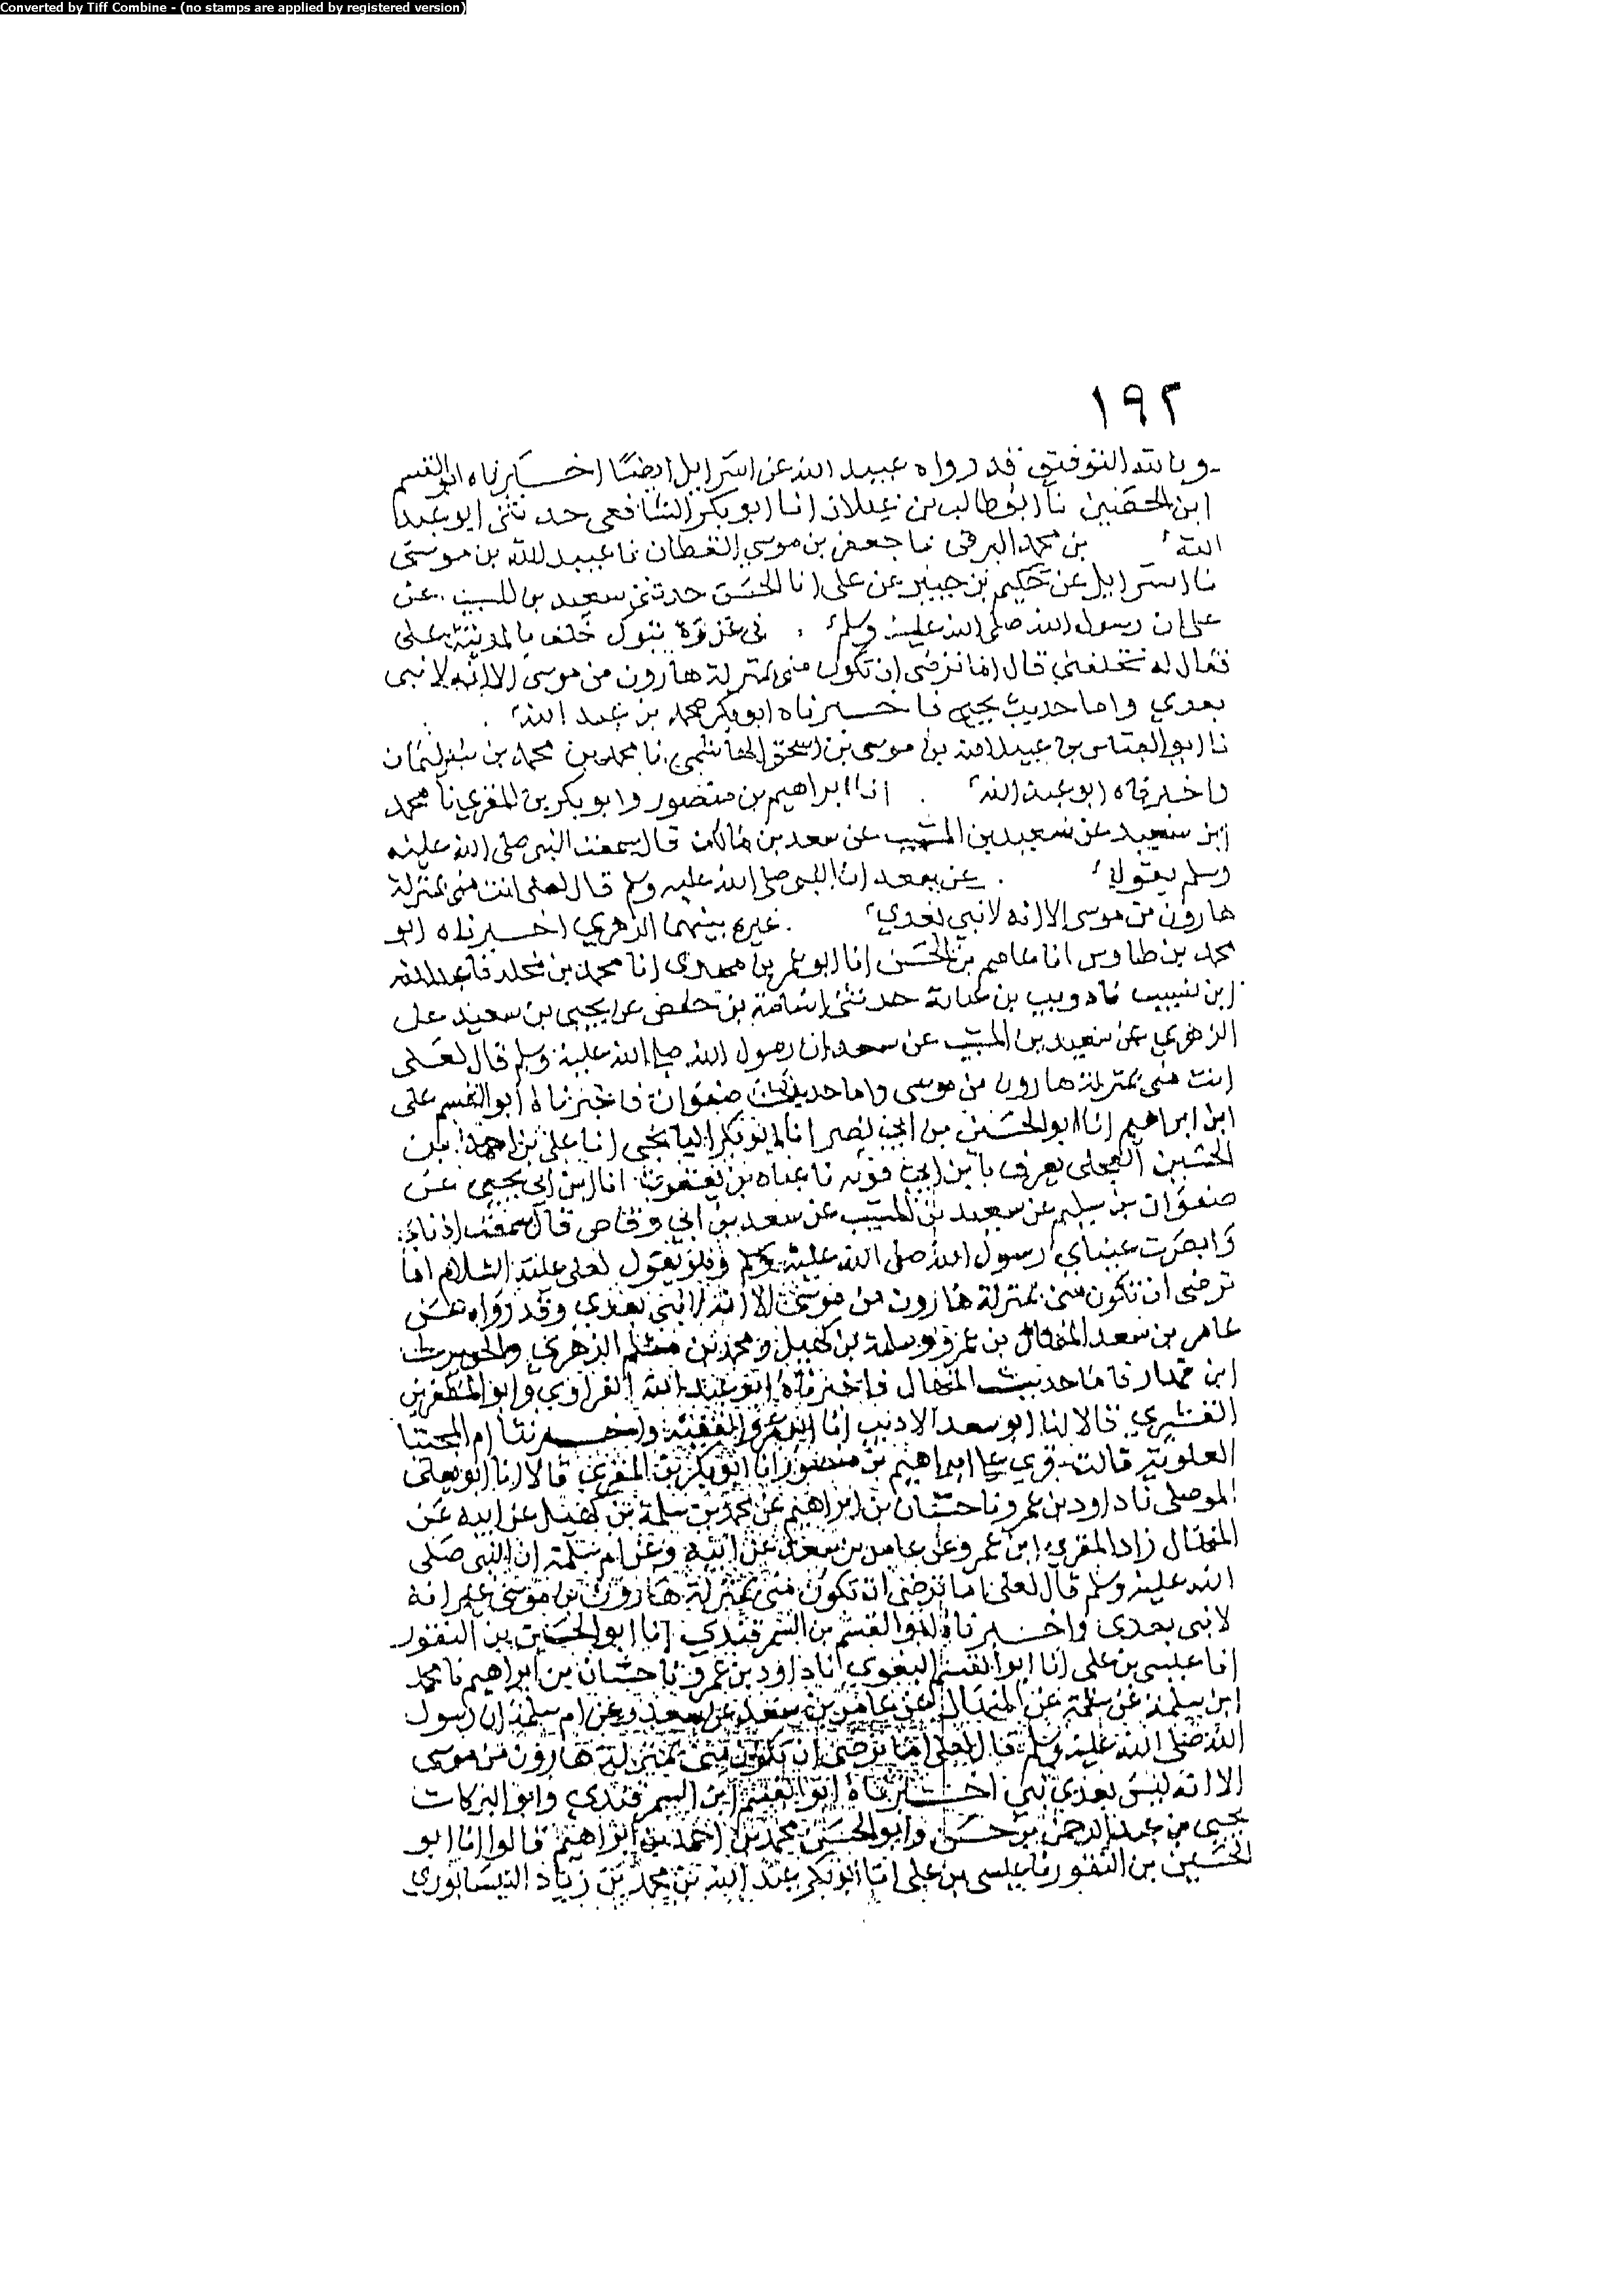 Converted by Tiff Combine - (no stamps are applied by registered version)
١٩٢
وبالله التوفيق قد رواه عبيد الله عن اسرايل ايضا اخبرناه ابو القسم
ابن الحصين نا ابو طالب بن غيلان انا ابو بكر الشافعي حدثني ابو عبد
الله بن محمد البرقي نا جعفر بن موسى القطان نا عبيد الله بن موسى
نا اسرايل عن حكيم بن جبير عن علي انا الحسن حدثني سعيد بن المسيب عن
علي ان رسول الله صلى الله عليه وسلم في غزوة تبوك خلف بالمدينة علي
فقال له تخلفني قال اما ترضى ان تكون مني بمنزلة هارون من موسى الا انه لا نبي
بعدي واما حديث يحيى فاخبرناه ابو بكر محمد بن عبد الله
نا ابو العباس بن عبيد الله بن موسى بن اسحق الهاشمي نا محمد بن محمد بن سليمان
واخبرناه ابو عبد الله انا ابراهيم بن منصور وابو بكر بن المقري نا محمد
ابن سعيد عن سعيد بن المسيب عن سعد بن مالك قال سمعت النبي صلى الله عليه
وسلم يقول عن سعد ان النبي صلى الله عليه وسلم قال لعلي انت مني بمنزلة
هارون من موسى الا انه لا نبي بعدي غيره بينهما الزهري اخبرناه ابو
محمد بن طاوس انا عاصم بن الحسن انا ابو عمر بن مهدي انا محمد بن مخلد نا عبد الله
ابن شبيب نا ذويب بن عمامة حدثني اسامة بن حفص عن يحيى بن سعيد عن
الزهري عن سعيد بن المسيب عن سعد ان رسول الله صلى الله عليه وسلم قال لعلي
انت مني بمنزلة هارون من موسى واما حديث صفوان فاخبرناه ابو القسم علي
ابن ابراهيم انا ابو الحسين بن ابي نصر انا ابو بكر الميانجي انا علي بن احمد بن
الحسين العجلي يعرف بابن ابي قربة نا عباد بن يعقوب انا ابن ابي يحيى عن
صفوان بن سليم عن سعيد بن المسيب عن سعد بن ابي وقاص قال سمعت اذناي
وابصرت عيناي رسول الله صلى الله عليه وسلم وهو يقول لعلي عليه السلام اما
ترضى ان تكون مني بمنزلة هارون من موسى الا انه لا نبي بعدي وقد رواه عن
عامر بن سعد المنهال بن عمرو وسلمة بن كهيل ومحمد بن مسلم الزهري والحويرث
ابن فاما حديث المنهال فاخبرناه ابو عبد الله الفراوي وابو المظفر بن
القشيري قالا لنا ابو سعد الاديب انا ابو عمرو الفقيه واخبرتنا ام المجتبا
العلوية قالت قري على ابراهيم بن منصور انا ابو بكر بن المقري قالا انا ابو يعلى
الموصلي نا داود بن عمرو نا حسان بن ابراهيم عن محمد بن سلمة بن كهيل عن ابيه عن
المنهال زاد المقري ابن عمرو عن عامر بن سعد عن ابيه وعن ام سلمة ان النبي صلى
الله عليه وسلم قال لعلي اما ترضى ان تكون مني بمنزلة هارون من موسى غير انه
لا نبي بعدي واخبرناه ابو القسم بن السمرقندي انا ابو الحسين بن النقور
انا عيسى بن علي انا ابو القسم البغوي نا داود بن عمرو نا حسان بن ابراهيم نا محمد
ابن سلمة عن سلمة عن المنهال عن عامر بن سعد عن سعد وعن ام سلمة ان رسول
الله صلى الله عليه وسلم قال لعلي اما ترضى ان تكون مني بمنزلة هارون من موسى
الا انه ليس بعدي نبي اخبرناه ابو القسم ابن السمرقندي وابو البركات
يحيى بن عبد الرحمن بن حسن وابو الحسن محمد بن احمد بن ابراهيم قالوا انا ابو
الحسين بن النقور نا عيسى بن علي انا ابو بكر عبد الله بن محمد بن زياد النيسابوري